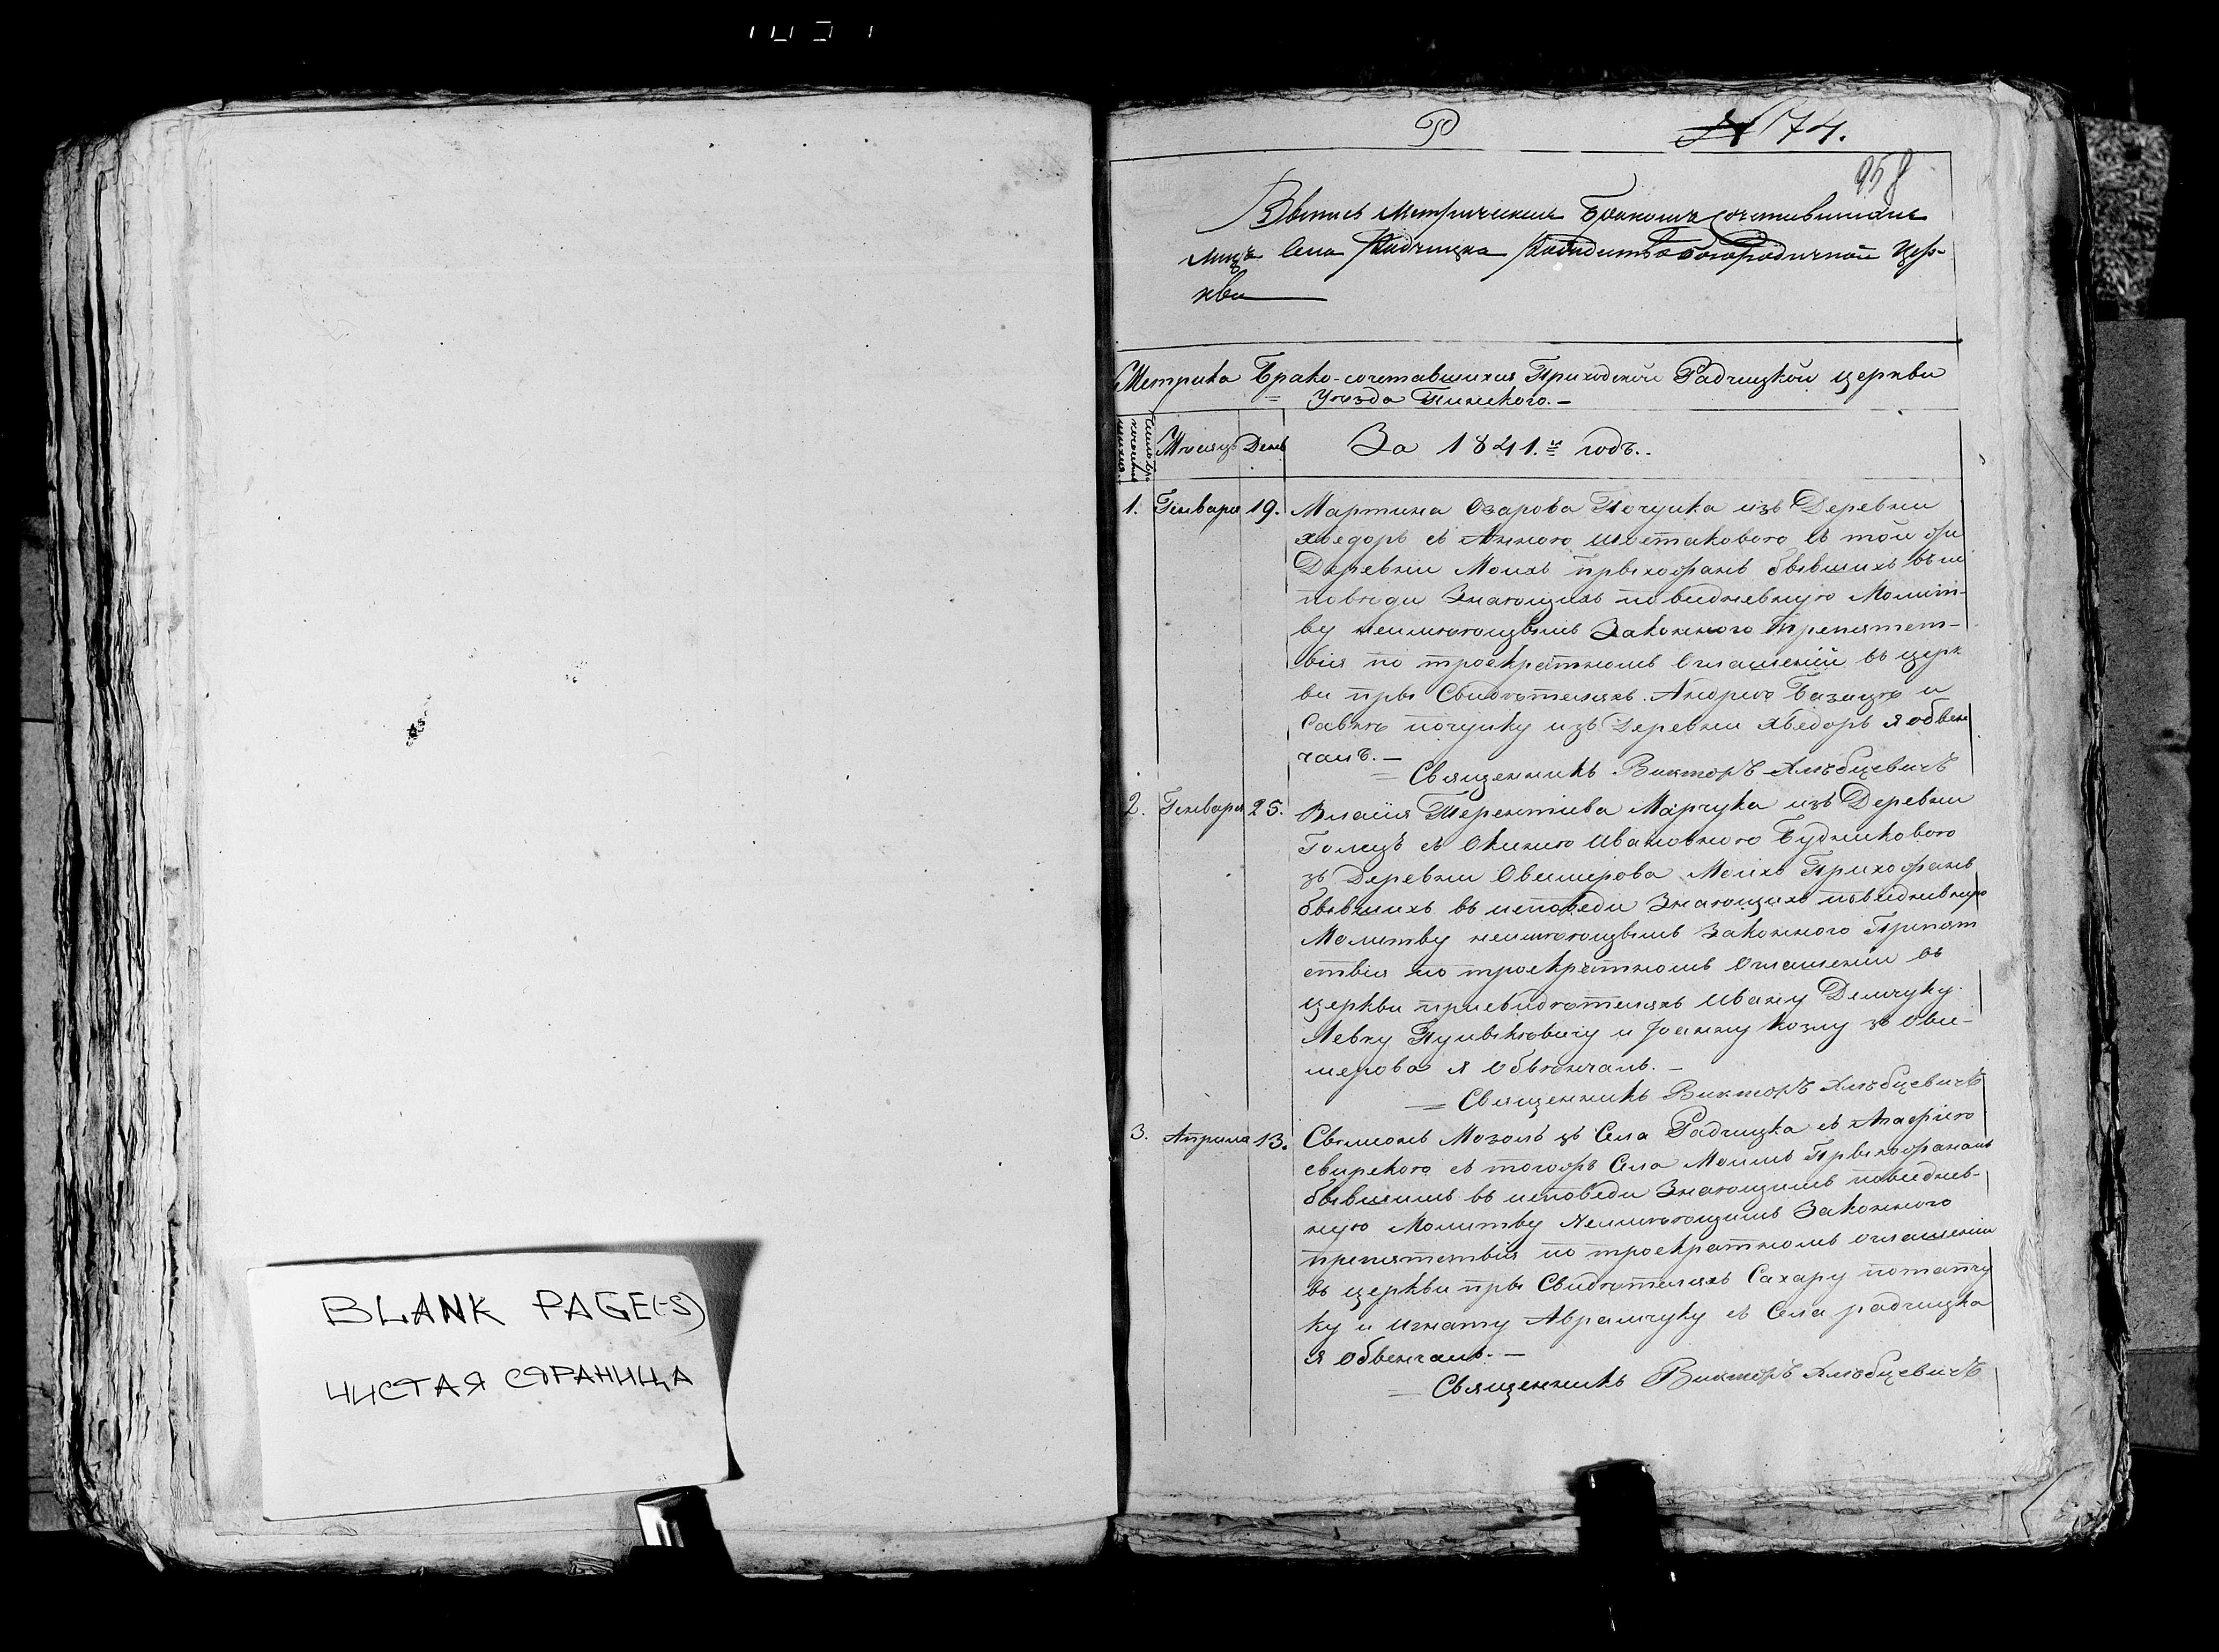 BLANK PAGE(-S)
ЧИСТАЯ СТРАНИЦА
Р
№ 74.
958
Выпись Метрическая Бракомъ сочетавшихся
лицъ Села Радчицка Рождество Богородичной Цер-
кви
Метрика Брако-сочетавшихся Приходской Радчицкой церкви
Уѣзда Пинского. –
Мѣсяцъ День За 1841.й годъ. .
1. Генваря 19. Мартина Озарова Почуйка изъ Деревни
Хведоръ съ Анною Шостаковою съ той же
Деревни Моихъ прыхожанъ бывшихъ въ ис
поведи Знающихъ повседневную Молит-
ву неимѣющымъ Законного Препятст-
вія по троекратномъ Оглашеніи въ церк
ви пры Свидѣтеляхъ Андрею Базацю и
Савкѣ почуйку изъ Деревни Хведоръ я обвен
чалъ. –
= Священникъ Викторъ Хлѣбцевичъ
2. Генваря 25. Власія Терентіева Марчука изъ Деревни
Голецъ съ Окинею Ивановною Будниковою
зъ Деревни Овсимирова Моихъ Прихожанъ
бывшихъ въ исповеди Знающихъ повседневную
Молитву неимѣющымъ Законного Препят
ствія по троекратномъ Оглашеніи въ
церкви присвидѣтеляхъ Ивану Демчуку
Левку Пуцыковичу и Іоанну Козлу зъ Овси-
мерова я Обвѣнчалъ. –
= Священникъ Викторъ Хлѣбцевичъ
3. Апрыля 13. Свымонъ Мозоль зъ Села Радчицка съ Агафіею
свирскою съ тогожъ Села Моимъ Прыхожанамъ
бывшимъ въ исповеди Знающимъ повседнев-
ную Молитву Неимѣющимъ Законного
препятствія по троекратномъ оглашеніи
въ церкви пры Свидѣтеляхъ Сахару потапчу
ку и Игнату Абрамчуку съ Села радчицка
я Обвенчалъ. –
= Священникъ Викторъ Хлѣбцевичъ